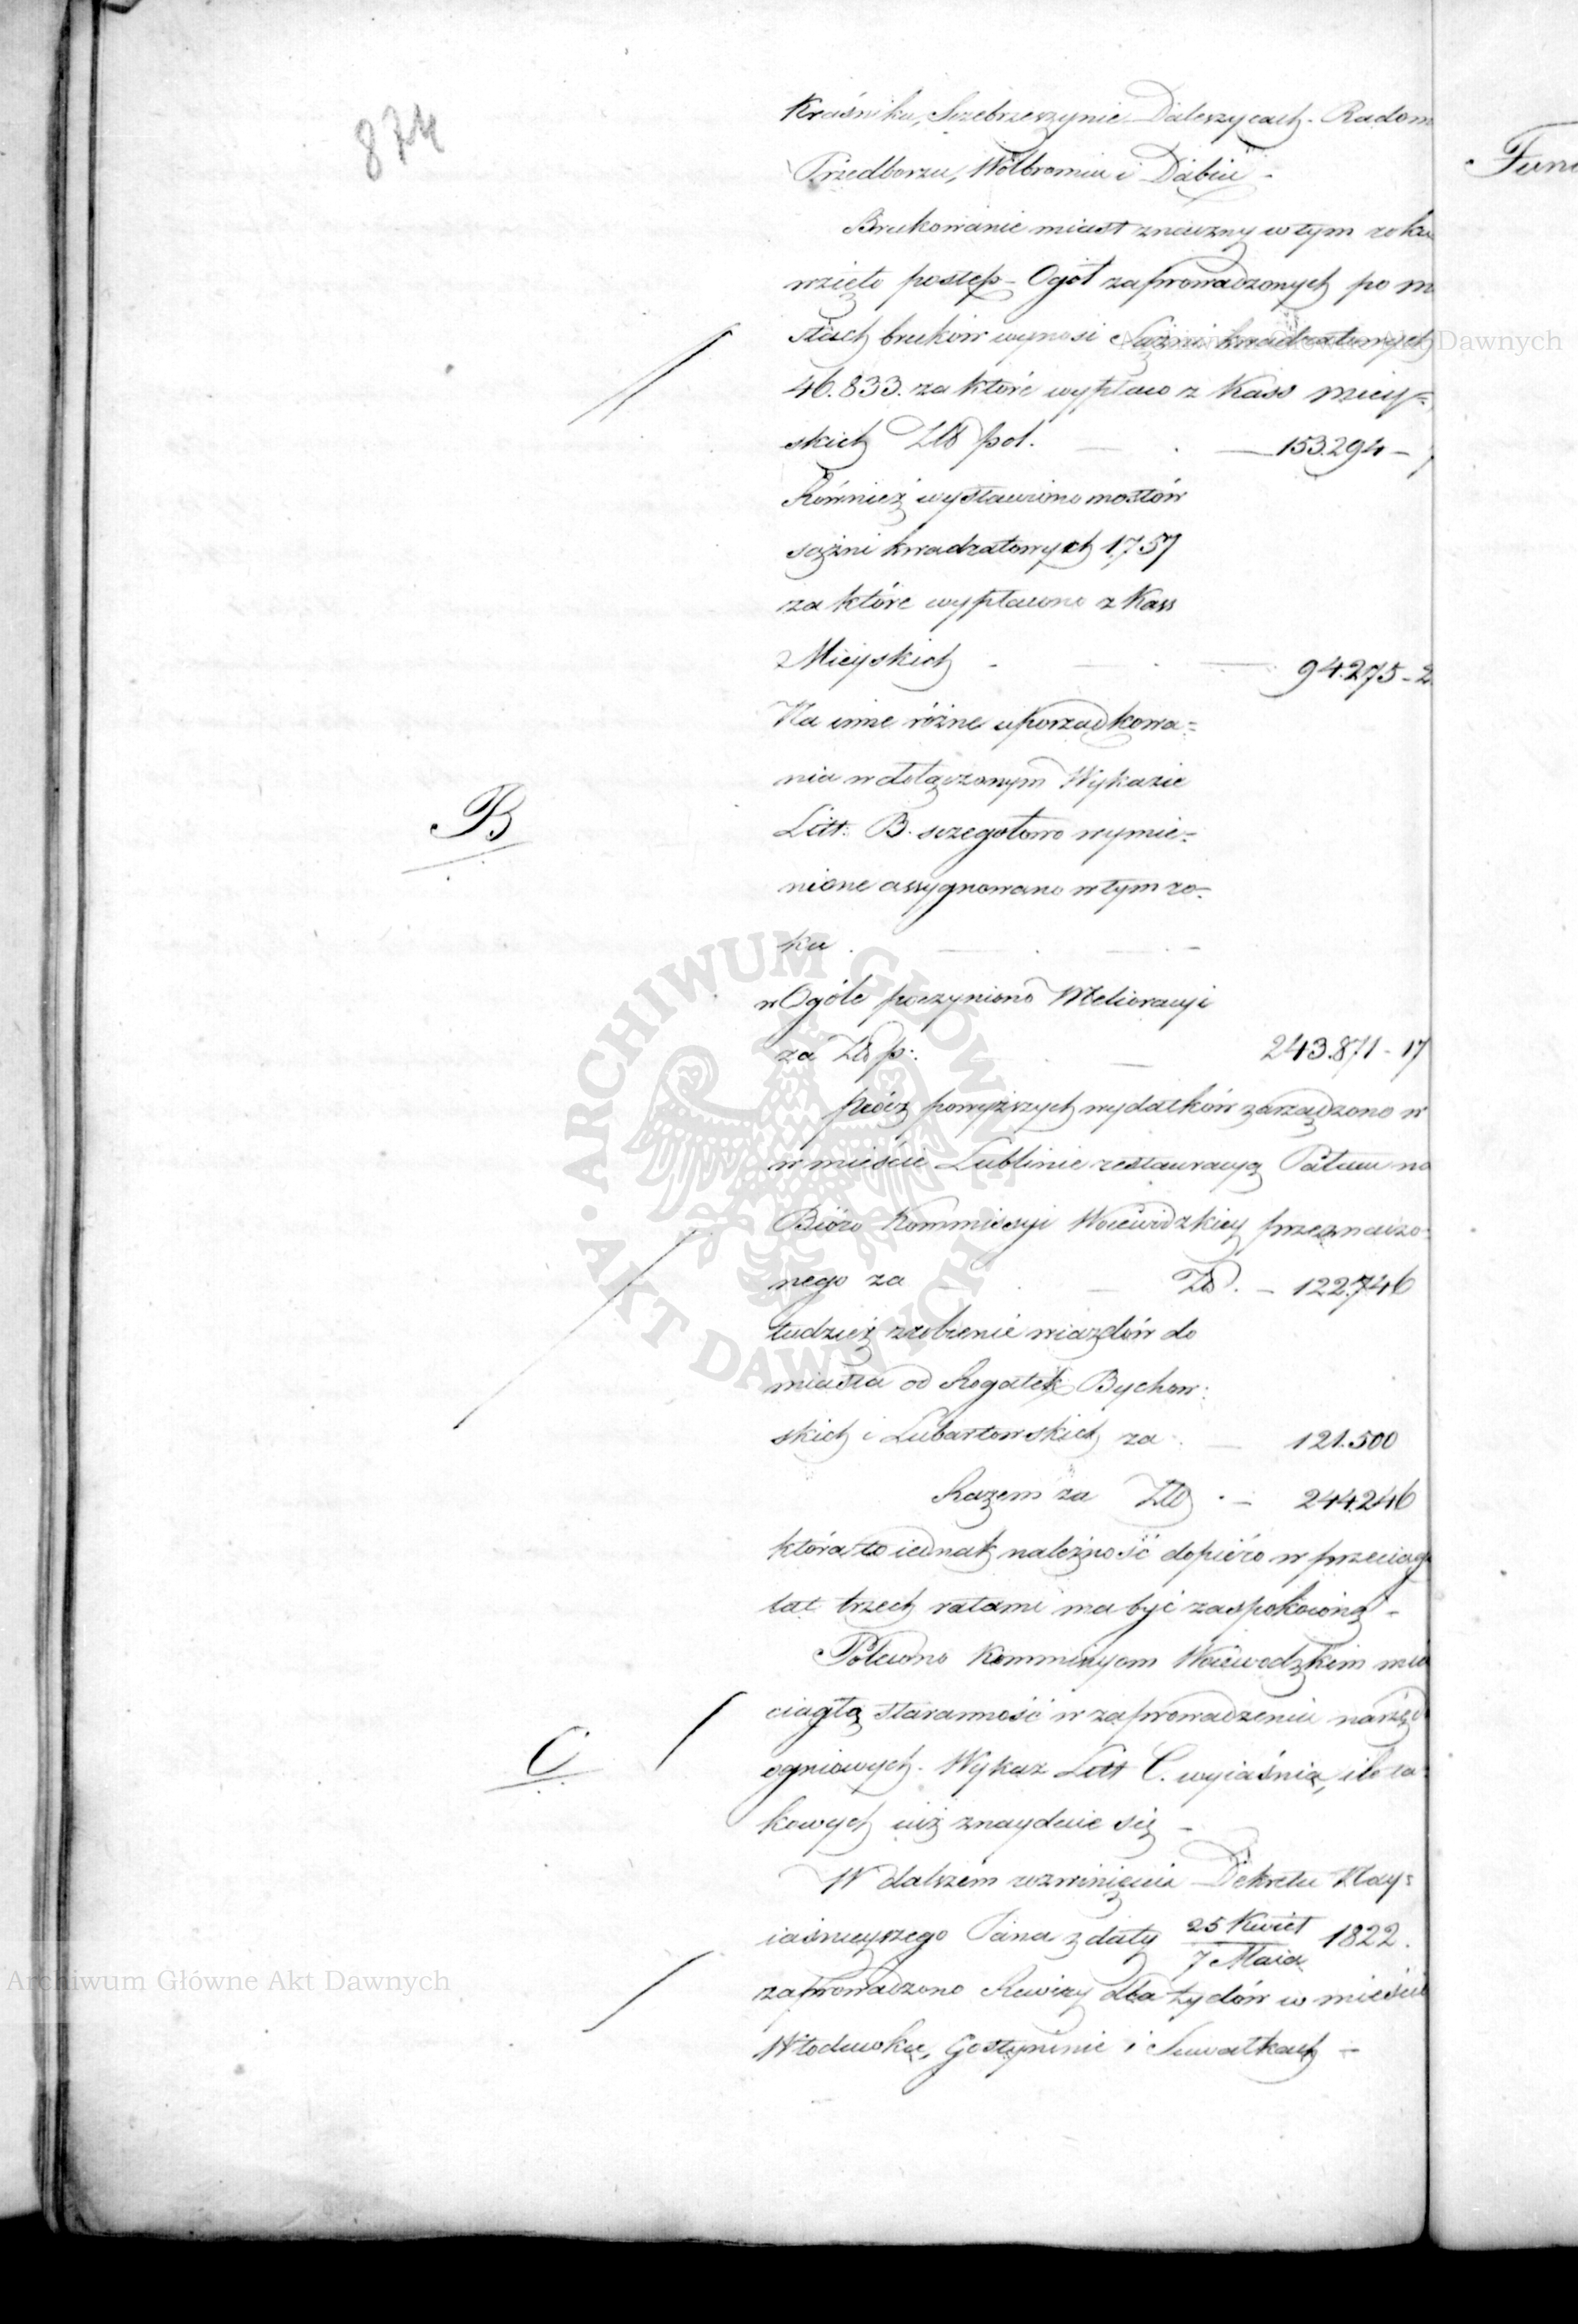 874
Kraśniku, Szebrzeszynie Daleszycach. Radom
Przedborzu, Wolbromiu i Dąbiu -
Brukowanie miast znaczny w tym roku
wzięło postęp - Ogół zaprowadzonych po m
stach bruków wynosi Sążni kwadratowych
46.833. za które wypłac z Kass miey=
skich Złt pol. — . — 153.294 -
Również wystawiono mostów
sążni kwadratowych 1757
za które wypłacono z Kass
Mieyskich - — . — 94.275 - 2
Na inne różne uporządkowa=
nia w dołączonym Wykazie
B
Litt: B. szczegółowo wymie=
nione assygnowano w tym ro=
ku . — . — . -
w Ogóle poczyniono Melioracyi
za Złt p: . — 243.871 - 17
prócz powyższych wydatków zarządzono w
w mieście Lublinie restauracyą Pałacu na
Bióro Kommissyi Woiewódzkiey przeznaczo=
nego za — . — Zł. - 122.746
tudzież zrobienie wiazdów do
miasta od Rogatek Bychow:
skich i Lubartowskich za . — 121.500
Razem za Złt . - 244.246
która to iednak należność dopiéro w przeciąg
lat trzech ratami ma być zaspokoioną -
Polecono Kommissyom Woiewodzkim mie
ciągłą staranność w zaprowadzeniu narzęd
C
ogniowych. Wykaz Litt C. wyiaśnia, ile ta=
kowych iuż znayduie się -
W dalszém rozwinięciu Dekretu Nay=
iaśnieyszego Pana z daty 25 Kwiet / 7 Maia 1822.
zaprowadzono Rewiry dla żydów w mieście
Włocławku, Gostyninie i Suwałkach -
Fun
Archiwum Główne Akt Dawnych
Archiwum Główne Akt Dawnych
ARCHIWUM GŁÓWNE · AKT DAWNYCH ·